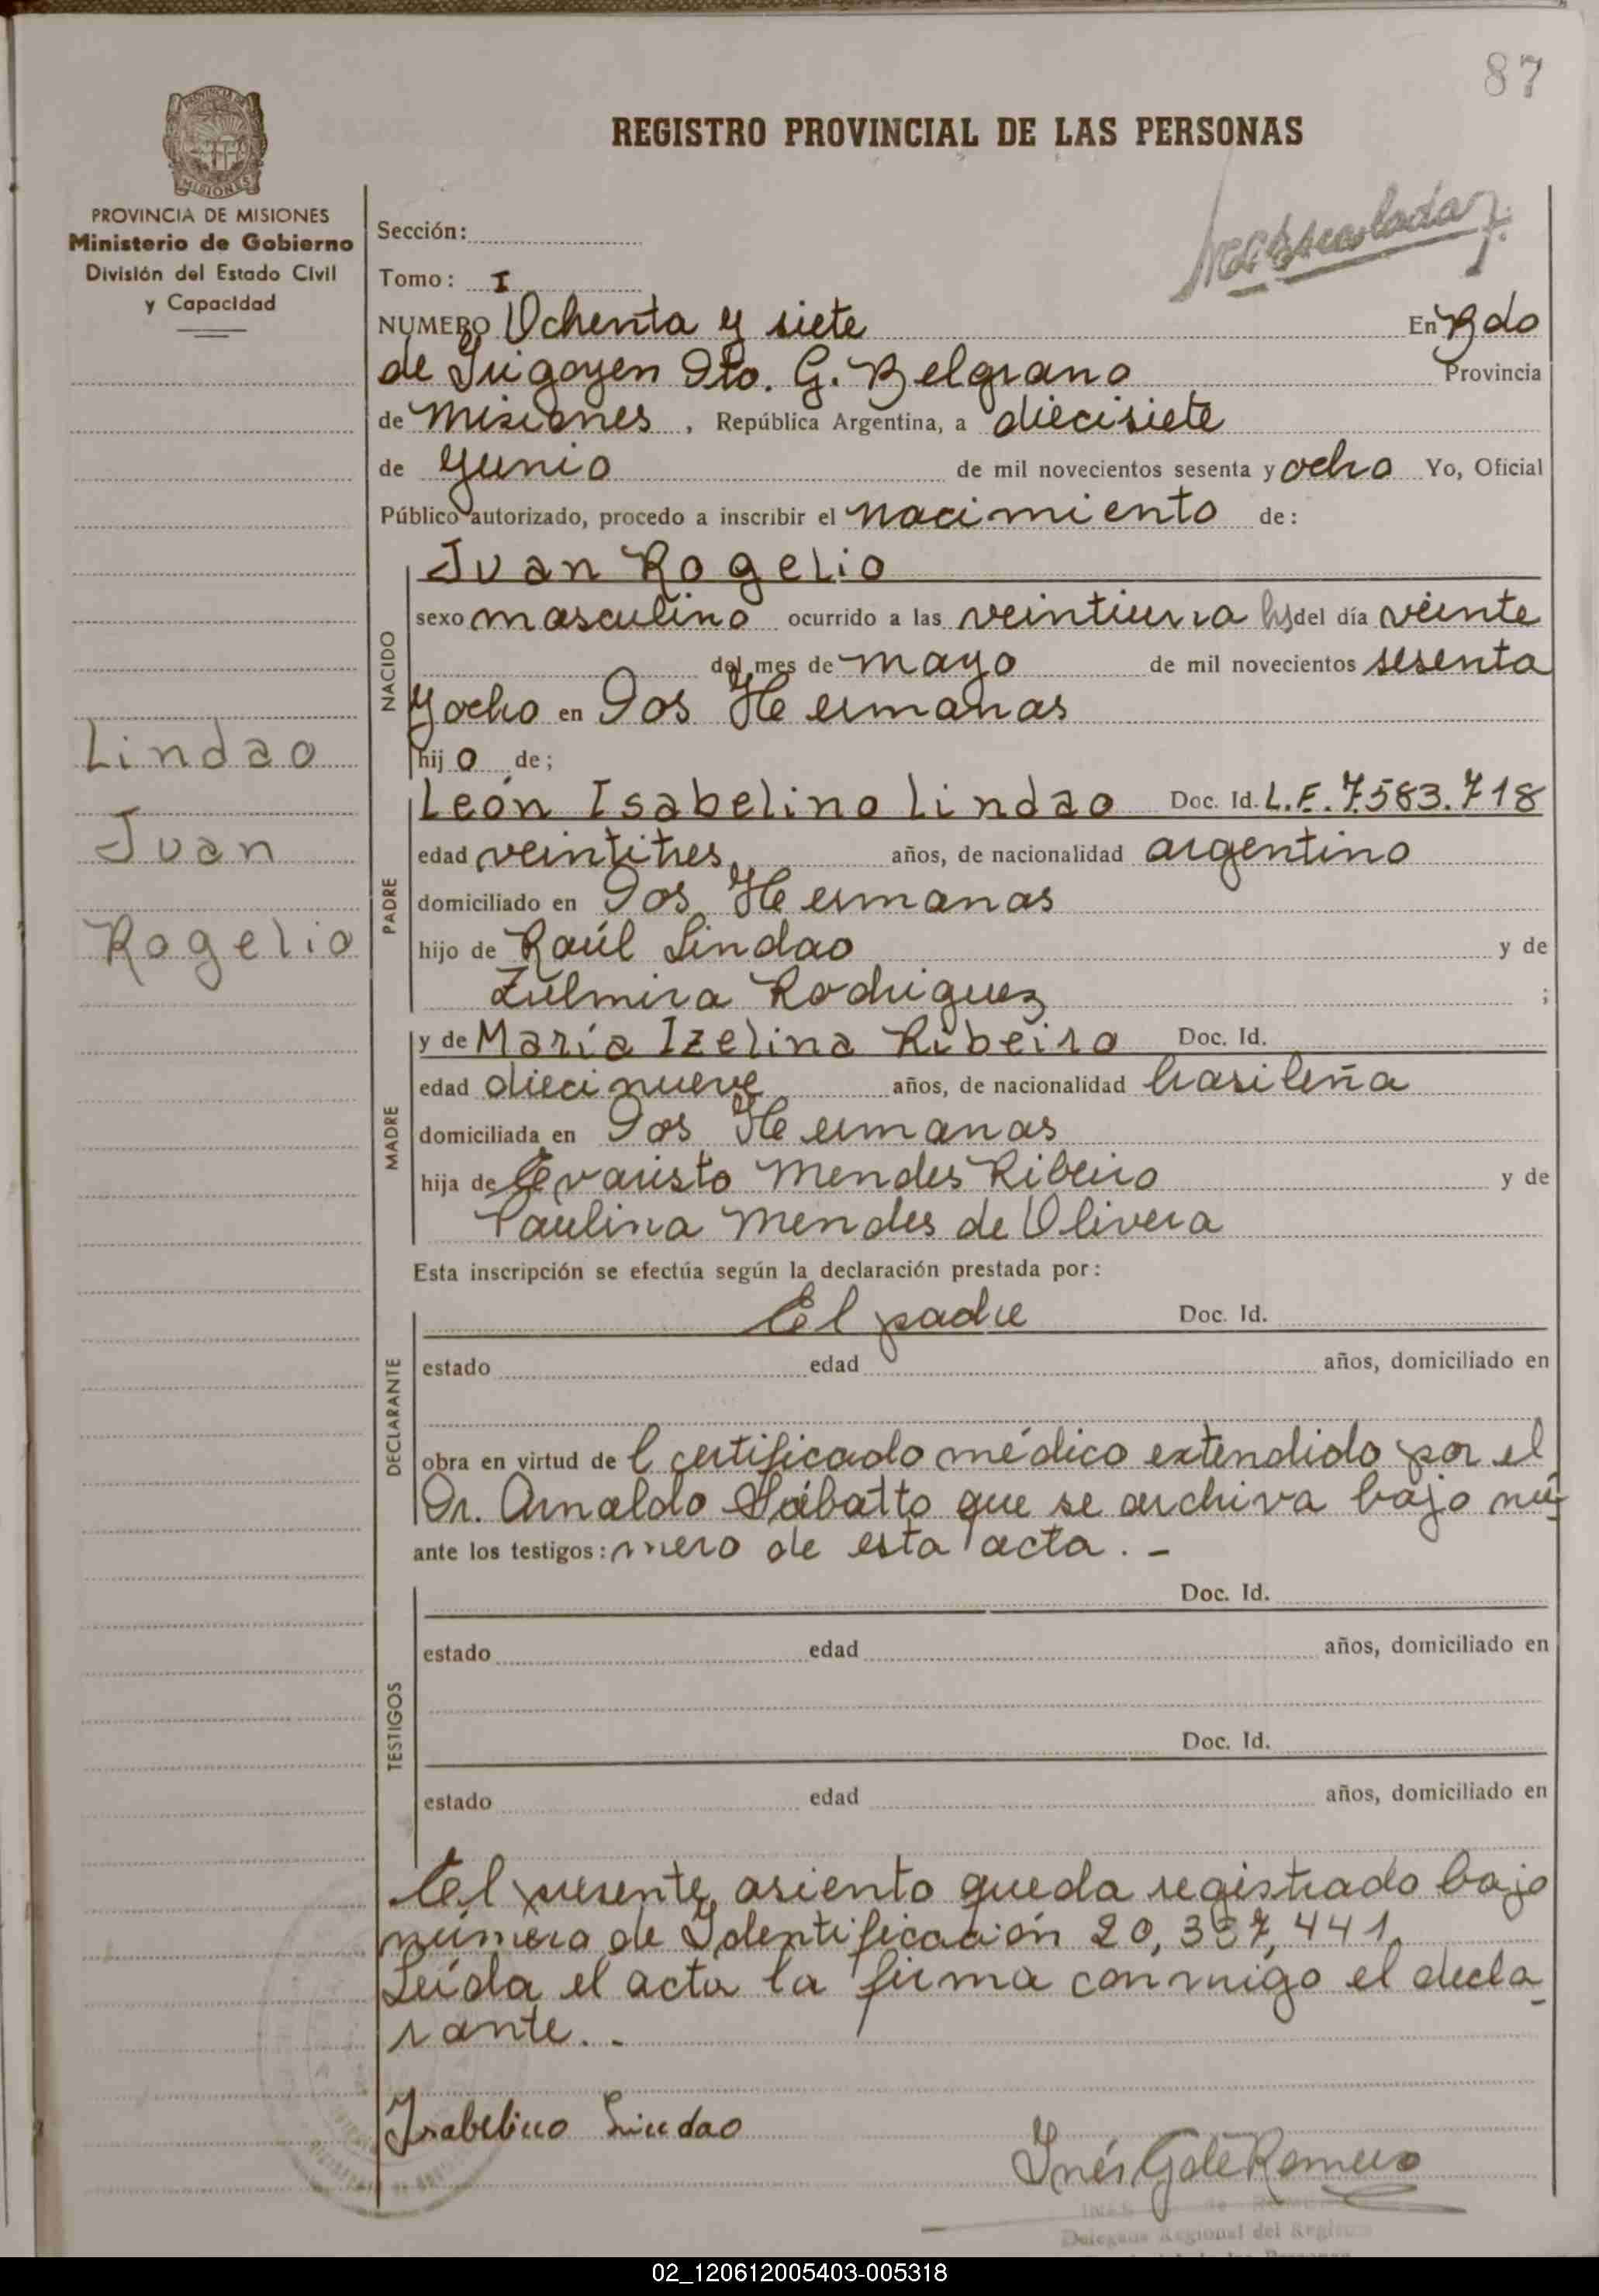 87
REGISTRO PROVINCIAL DE LAS PERSONAS
PROVINCIA DE MISIONES
Ministerio de Gobierno
División del Estado Civil
y Capacidad
Sección:
Tomo: I
NUMERO Ochenta y siete En Bdo
de Irigoyen Dto. G. Belgrano Provincia
de Misiones, República Argentina, a diecisiete
de Junio de mil novecientos sesenta y ocho Yo, Oficial
Público autorizado, procedo a inscribir el nacimiento de:
Juan Rogelio
NACIDO
sexo masculino ocurrido a las veintiuna hs del día veinte
del mes de mayo de mil novecientos sesenta
y ocho en Dos Hermanas
hijo de;
Lindao
Juan
Rogelio
León Isabelino Lindao Doc. Id. L.E. 7.583.718
PADRE
edad veintitres, años, de nacionalidad argentino
domiciliado en Dos Hermanas
hijo de Raúl Lindao y de
Zulmira Rodriguez ;
y de María Izelina Ribeiro Doc. Id.
MADRE
edad diecinueve años, de nacionalidad brasileña
domiciliada en Dos Hermanas
hija de Evaristo Mendes Ribeiro y de
Paulina Mendes de Olivera
Esta inscripción se efectúa según la declaración prestada por:
El padre Doc. Id.
DECLARANTE
estado edad años, domiciliado en
obra en virtud de l certificado médico extendido por el
Dr. Arnaldo Sábatto que se archiva bajo nú-
ante los testigos: mero de esta acta. -
Doc. Id.
TESTIGOS
estado edad años, domiciliado en
Doc. Id.
estado edad años, domiciliado en
El presente asiento queda registrado bajo
número de Identificación 20,337,441.
Leída el acta la firma conmigo el decla-
rante. -
Isabelino Lindao
Inés G de Romero
Delegada Regional del Registro
02_120612005403-005318